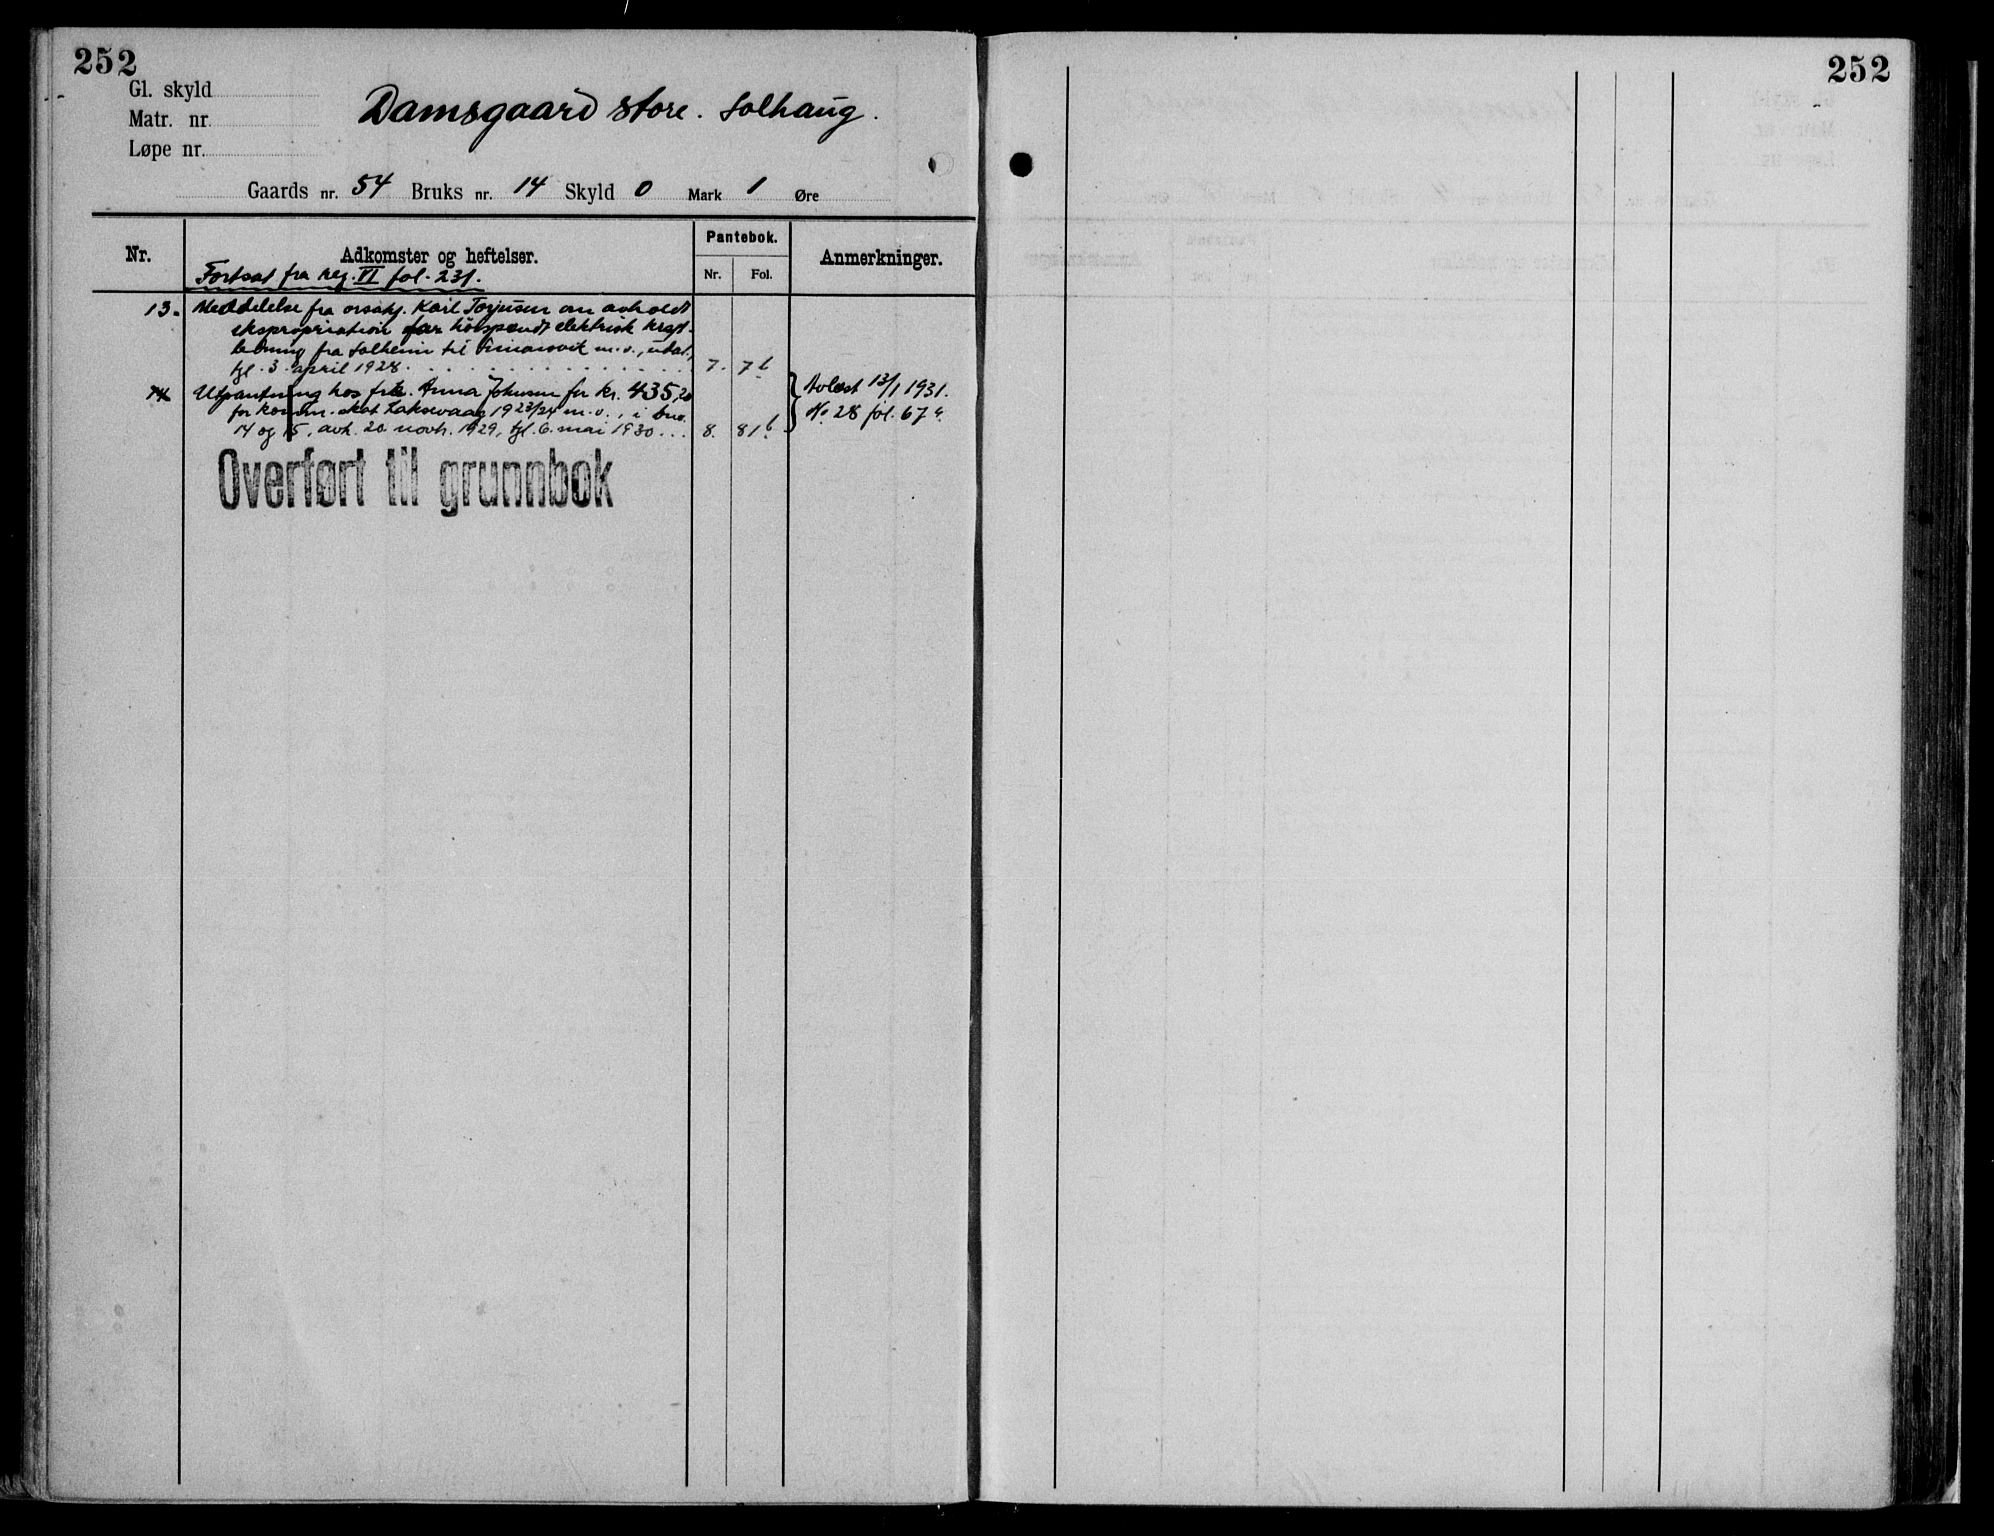 252
252
Gl. skyld
Matr. nr.
Løpe nr.
Damsgaard store. Solhaug.
Gaards nr. 54 Bruks nr. 14 Skyld 0 Mark 1 Øre
Nr.
Adkomster og heftelser.
Pantebok.
Nr. Fol.
Anmerkninger.
Fortsat fra reg. VI fol. 231.
13. Meddelelse fra orsakf. Karl Torjusen om avholdt
ekspropriation for høispændt elektrisk kraft-
ledning fra Solheim til m.v., udat,
tgl. 3. april 1928. 7. 7b
14 Utpantning hos frk. Anna Johnsen for kr. 435,20
for komm. skat Laksevaag 1923/24 m.v., i bnr.
14 og 15, avh. 20. novb. 1929, tgl. 6. mai 1930... 8. 81b
Avlæst 13/1 1931.
No. 28 fol. 67a.
Overført til grunnbok